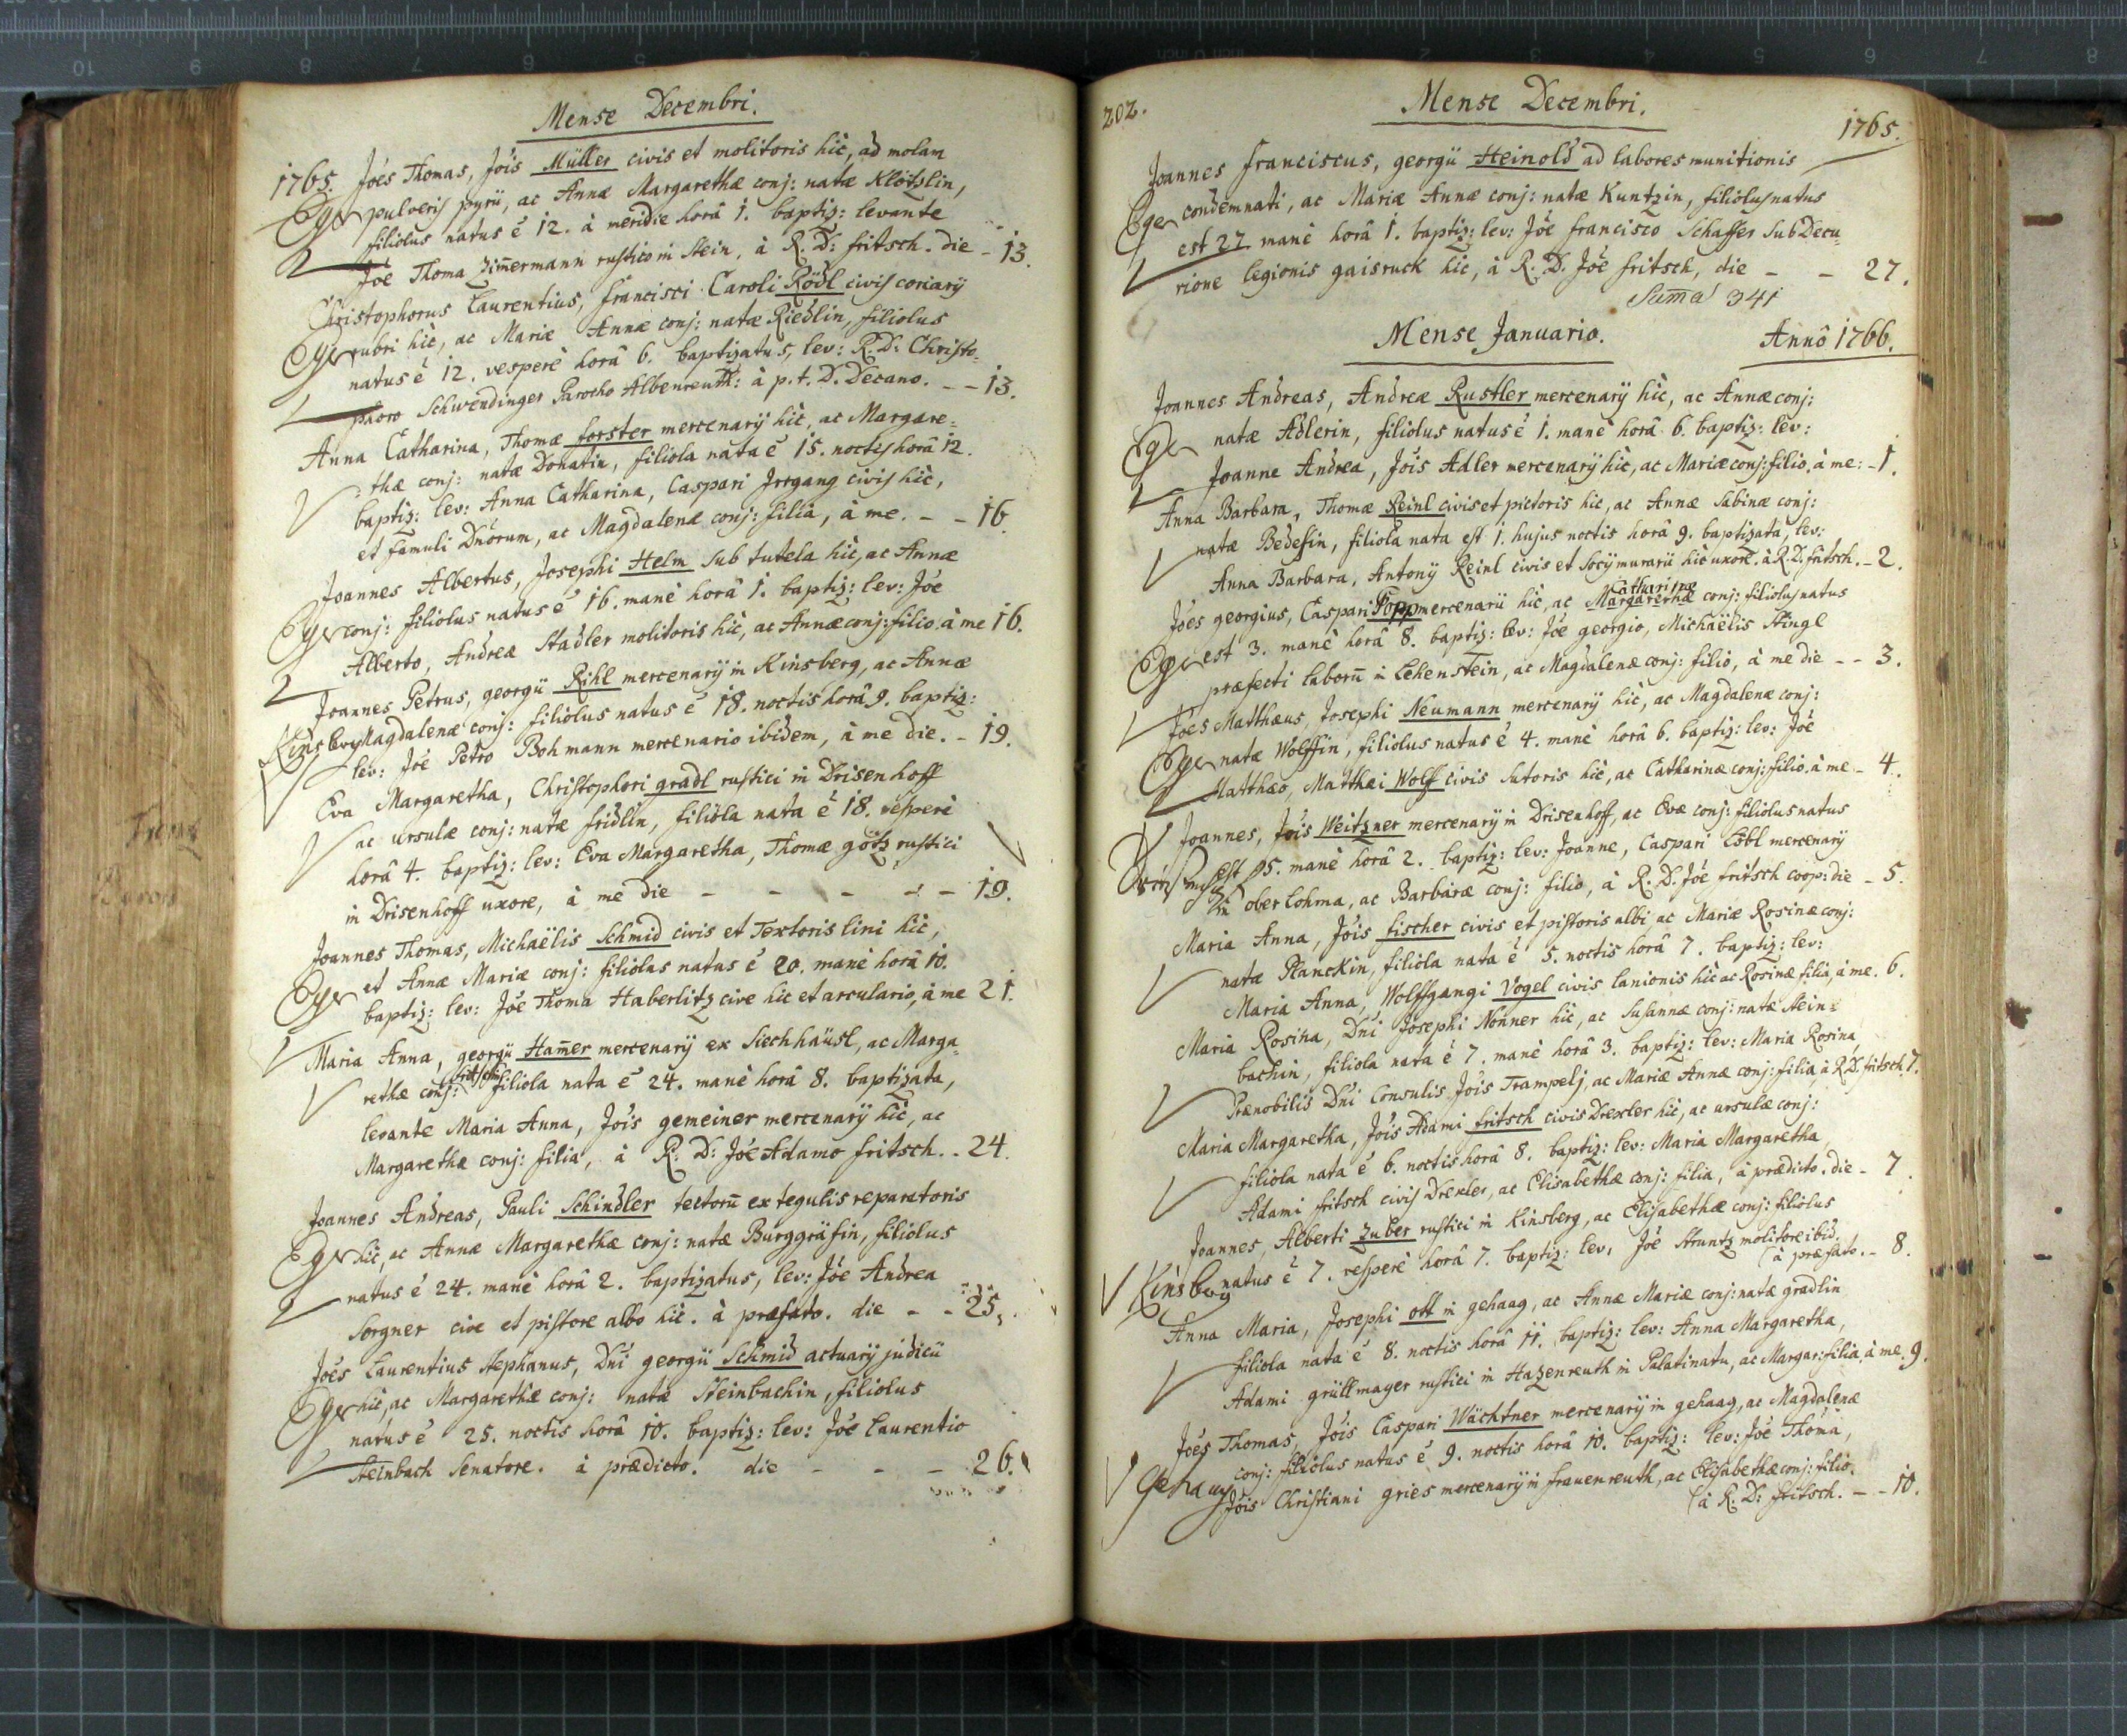 Mense Decembri.
1765. Jões Thomas, Jõis Müller civis et molitoris hìc, ad molam
Eger pulveris pyrii, ac Annæ Margarethæ conj: natæ Klötzlin,
filiolus natus ē 12. à meridie horâ 1. baptiz: levante
Jõe Thoma Zim̄ermann rustico in Stein, à R. D: fritsch. die - 13.
Christophorus Laurentius, Francisci Caroli Rödl civis coriarÿ
Eger rubri hìc, ac Mariæ Annæ conj: natæ Riedlin, filiolus
natus ē 12. vesperè horâ 6. baptizatus, lev: R: D: Christo-
phoro Schwendinger Parocho Albenreuth: à p. t. D. Decano. - - 13.
Anna Catharina, Thomæ forster mercenarÿ hìc, ac Margare-
thæ conj: natæ Donatin, filiola nata ē 15. noctis horâ 12.
baptiz: lev: Anna Catharina, Caspari Irrgang civis hìc,
et famuli Dnõrum, ac Magdalenæ conj: filia, à me. - - 16
Joannes Albertus, Josephi Helm sub tutela hìc, ac Annæ
Eger conj: filiolus natus ē 16. manè horâ 1. baptiz: lev: Jõe
Alberto, Andreæ Stadler molitoris hìc, ac Annæ conj: filio, à me 16.
Joannes Petrus, georgii Rihl mercenarÿ in Kinsberg, ac Annæ
Kinsberg Magdalenæ conj: filiolus natus ē 18. noctis horâ 9. baptiz:
lev: Jõe Petro Bohmann mercenario ibidem, à me die. - 19.
Eva Margaretha, Christophori gradl rustici in Drisenhoff
ac ursulæ conj: natæ fridlin, filiola nata ē 18. vesperè
horâ 4. baptiz: lev: Eva Margaretha, Thomæ götz rustici
in Drisenhoff uxore, à me die - - - - - 19.
Joannes Thomas, Michaëlis Schmid civis et Textoris lini hìc,
Eger et Annæ Mariæ conj: filiolus natus ē 20. manè horâ 10.
baptiz: lev: Jõe Thoma Haberlitz cive hic et arculario, à me 21.
Maria Anna, georgii Ham̄er mercenarÿ ex Siechhäusl, ac Marga-
rethæ conj: filiola nata ē 24. manè horâ 8. baptizata,
levante Maria Anna, Jõis gemeiner mercenarÿ hìc, ac
Margarethæ conj: filia, à R: D: Jõe Adamo fritsch. - 24.
Joannes Andreas, Pauli Schindler tectorū ex tegulis reparatoris
Eger hìc, ac Annæ Margarethæ conj: natæ Burggräfin, filiolus
natus ē 24. manè horâ 2. baptizatus, lev: Jõe Andrea
Sorgner cive et pistore albo hìc. à præfato. die - - 25.
Jões Laurentius Stephanus, Dni georgii Schmid actuarÿ judicii
Eger hìc, ac Margarethæ conj: natæ Steinbachin, filiolus
natus ē 25. noctis horâ 10. baptiz: lev: Jõe Laurentio
Steinbach Senatore. à prædicto. die - - - 26.
202. Mense Decembri. 1765.
Joannes Franciscus, georgii Heinold ad labores munitionis
Eger condemnati, ac Mariæ Annæ conj: natæ Kuntzin, filiolus natus
est 27 manè horâ 1. baptiz: lev: Jõe francisco Schaffer SubDecu-
rione legionis gaisruck hìc, à R. D. Jõe fritsch, die - - 27.
Sum̄a 341
Mense Januario. Annô 1766.
Joannes Andreas, Andreæ Rustler mercenarÿ hìc, ac Annæ conj:
Eger natæ Adlerin, filiolus natus ē 1. manè horâ 6. baptiz: lev:
Joanne Andrea, Jõis Adler mercenarÿ hìc, ac Mariæ conj: filio, à me: - 1.
Anna Barbara, Thomæ Reinl civis et pictoris hìc, ac Annæ Sabinæ conj:
natæ Bedessin, filiola nata est 1. hujus noctis horâ 9. baptizata, lev:
Anna Barbara, Antonÿ Reinl civis et Socÿ murarii hìc uxore. à R. D. fritsch. - 2.
Jões georgius, Caspari Popp mercenarii hìc, ac Margarethæ Catharinæ conj: filiolus natus
Eger est 3. manè horâ 8. baptiz: lev: Jõe georgio, Michaëlis Stingl
præfecti laborū in Lehenstein, ac Magdalenæ conj: filio, à me die - - 3.
Jões Matthæus, Josephi Neumann mercenarÿ hìc, ac Magdalenæ conj:
Eger natæ Wolffin, filiolus natus ē 4. manè horâ 6. baptiz: lev: Jõe
Matthæo, Matthæi Wolff civis Sutoris hìc, ac Catharinæ conj: filio. à me - 4.
Joannes, Jõis Weitzner mercenarÿ in Drisenhoff, ac Evæ conj: filiolus natus
est 5. manè horâ 2. baptiz: lev: Joanne, Caspari Cöbl mercenarÿ
in oberlohma, ac Barbaræ conj: filio, à R. D. Jõe fritsch coop: die - 5.
Maria Anna, Jõis fischer civis et pistoris albi ac Mariæ Rosinæ conj:
natæ Planckin, filiola nata ē 5. noctis horâ 7. baptiz: lev:
Maria Anna, Wolffgangi Vogel civis lanionis hìc ac Rosinæ filia, à me. 6.
Maria Rosina, Dni Josephi Nonner hìc, ac Susannæ conj: natæ Stein-
bachin, filiola nata ē 7. manè horâ 3. baptiz: lev: Maria Rosina,
Prænobilis Dni Consulis Jõis Trampelj, ac Mariæ Annæ conj: filia, à R. D. fritsch. 7.
Maria Margaretha, Jõis Adami fritsch civis Drexler hìc, ac ursulæ conj:
filiola nata ē 6. noctis horâ 8. baptiz: lev: Maria Margaretha,
Adami fritsch civis Drexler, ac Elisabethæ conj: filia, à prædicto. die - 7.
Joannes, Alberti Zuber rustici in Kinsberg, ac Elisabethæ conj: filiolus
Kinsberg natus ē 7. vesperè horâ 7. baptiz: lev, Jõe Struntz molitore ibid.
(à præfato. - 8.
Anna Maria, Josephi ott in gehaag, ac Annæ Mariæ conj: natæ gradlin
filiola nata ē 8. noctis horâ 11. baptiz: lev: Anna Margaretha,
Adami grüllmayer rustici in Hazenreuth in Palatinatu, ac Margar: filia, à me. 9.
Jões Thomas, Jõis Caspari Wächtner mercenarÿ in gehaag, ac Magdalenæ
Gehaag conj: filiolus natus ē 9. noctis horâ 10. baptiz: lev: Jõe Thoma,
Jõis Christiani gries mercenarÿ in frauenreuth, ac Elisabethæ conj: filio.
(à R. D: fritsch. - - 10.